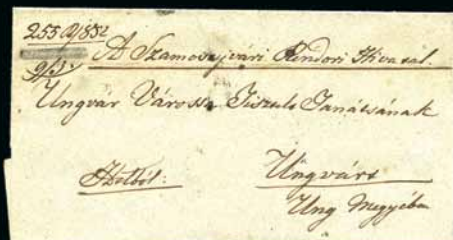 255 /852
A Szamosujvári Rendőri Hivatal.
Ungvár Városa Tiszelt Tanátsának
Hivatalból:
Ungvárt
Ung Megyében